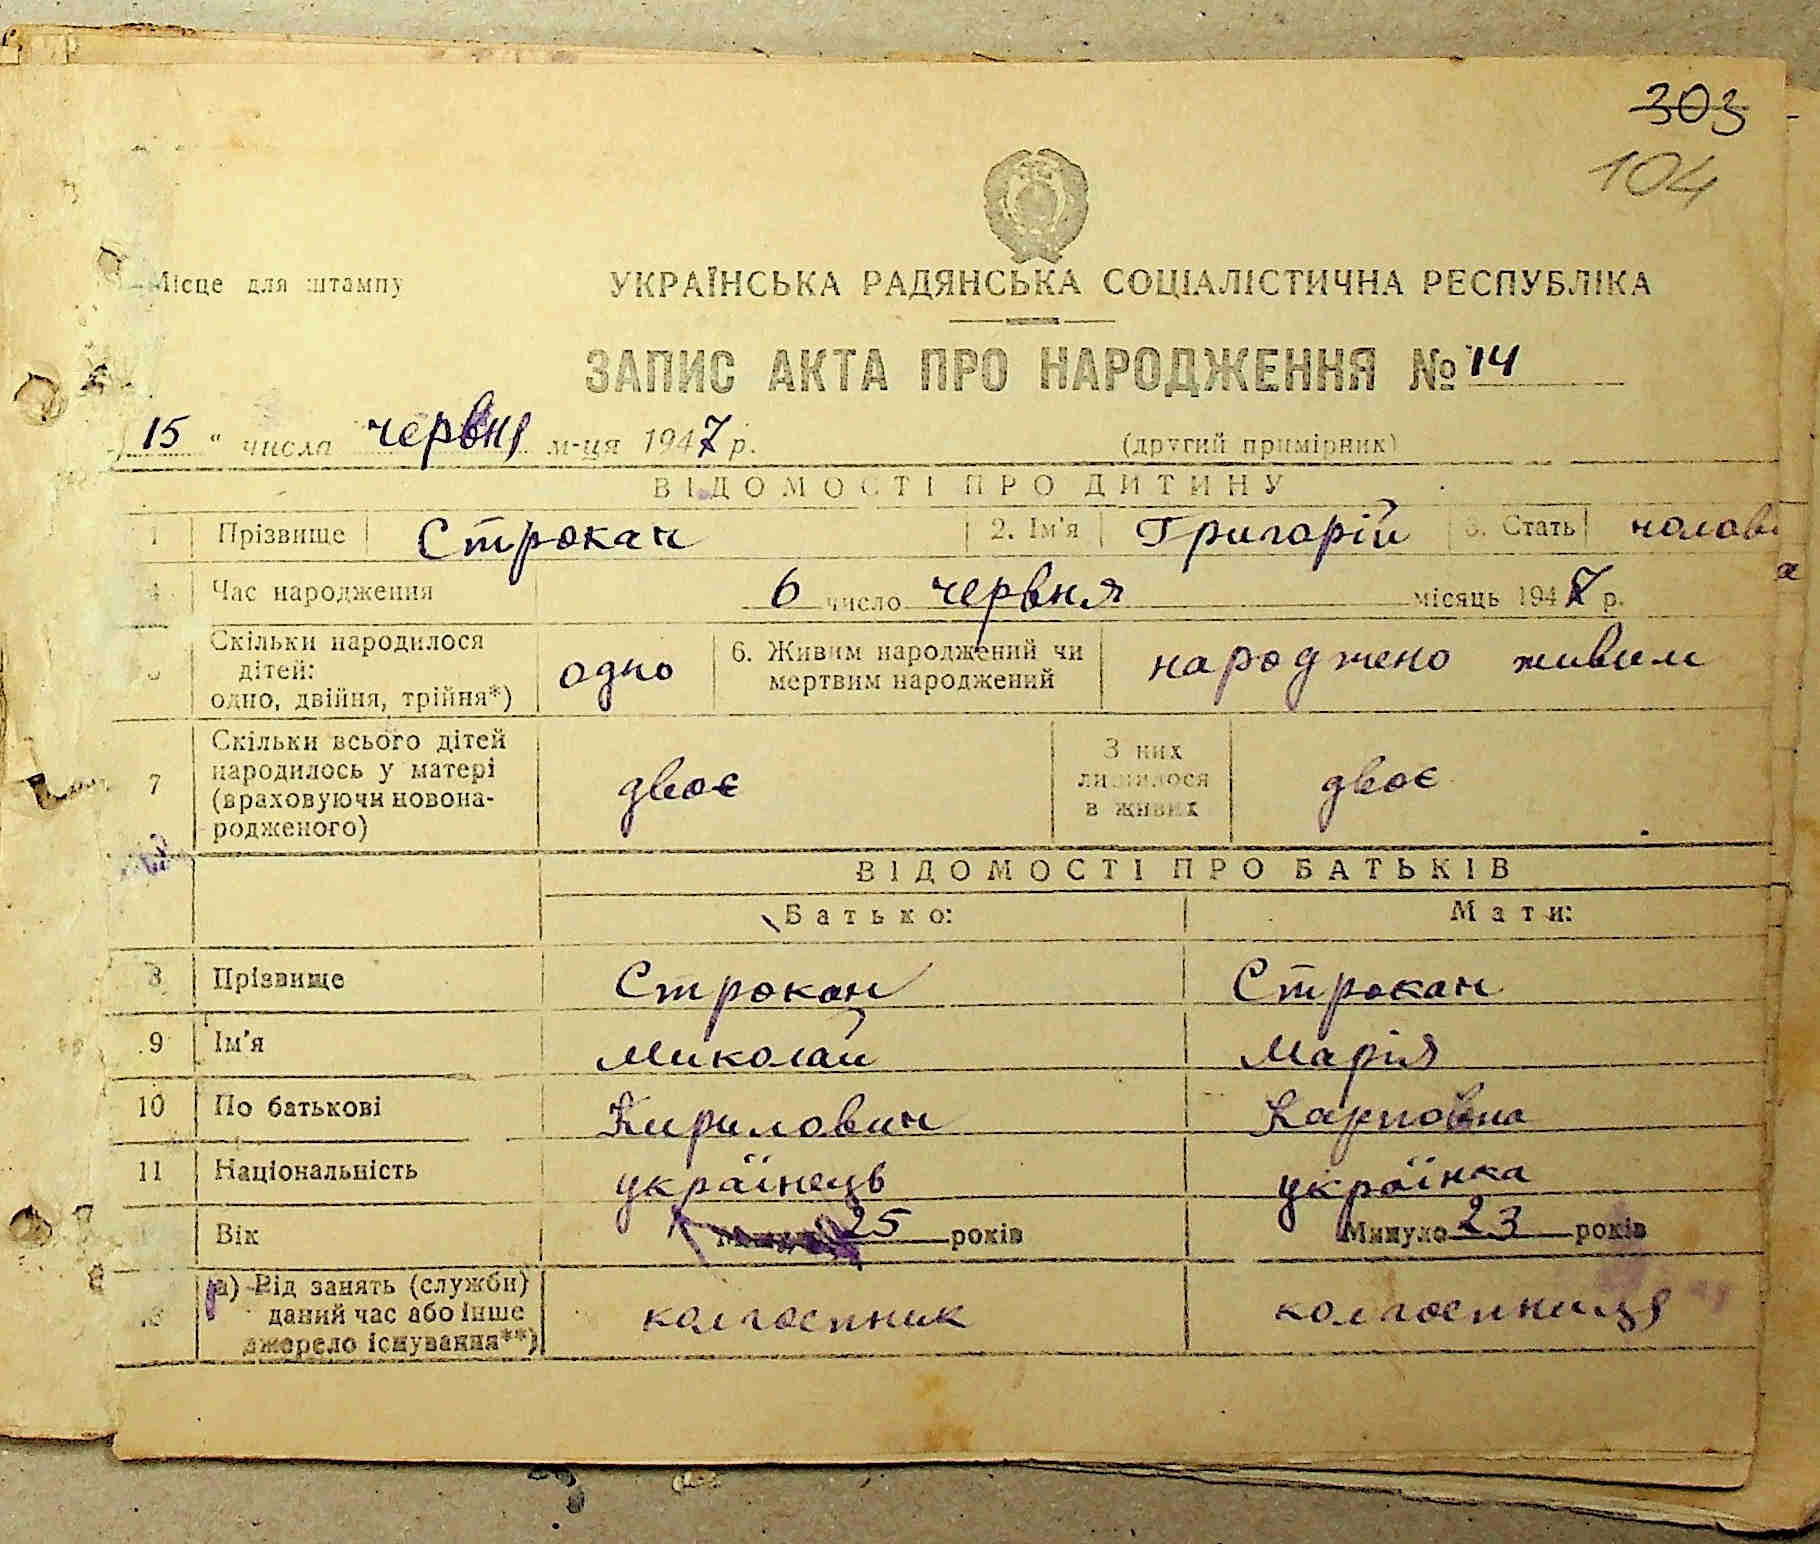 303
104
Місце для штампу
УКРАЇНСЬКА РАДЯНСЬКА СОЦІАЛІСТИЧНА РЕСПУБЛІКА
ЗАПИС АКТА ПРО НАРОДЖЕННЯ № 14
15 " числа червня м-ця 1947 р.
(другий примірник)
ВІДОМОСТІ ПРО ДИТИНУ
1 Прізвище Строкан 2. Ім'я Григорій 3. Стать чолові
ча
4 Час народження 6 число червня місяць 1947 р.
Скільки народилося
дітей:
одно, двійня, трійня*)
одно
6. Живим народжений чи
мертвим народжений
народжено живим
7
Скільки всього дітей
народилось у матері
(враховуючи новона-
родженого)
двоє
З них
лишилося
в живих
двоє
ВІДОМОСТІ ПРО БАТЬКІВ
Батько: Мати:
8 Прізвище Строкан Строкан
9 Ім'я Миколай Марія
10 По батькові Кирилович Карповна
11 Національність українець українка
Вік 25 років Минуло 23 років
а) Рід занять (служби)
даний час або інше
джерело існування**)
колгоспник колгоспниця